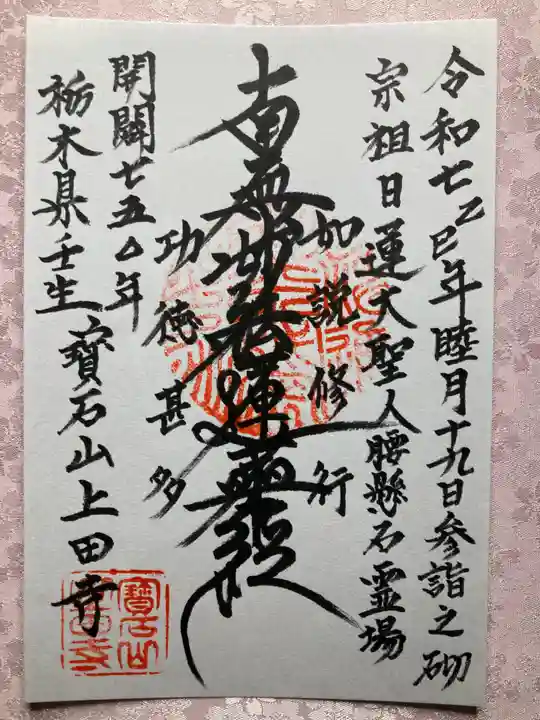 令和七乙巳年睦月十九日参詣之砌
宗祖日蓮大聖人腰懸石霊場
如説修行
南無妙法蓮華経
功徳甚多
開闢七五〇年
栃木県壬生寳石山上田寺
寳石山